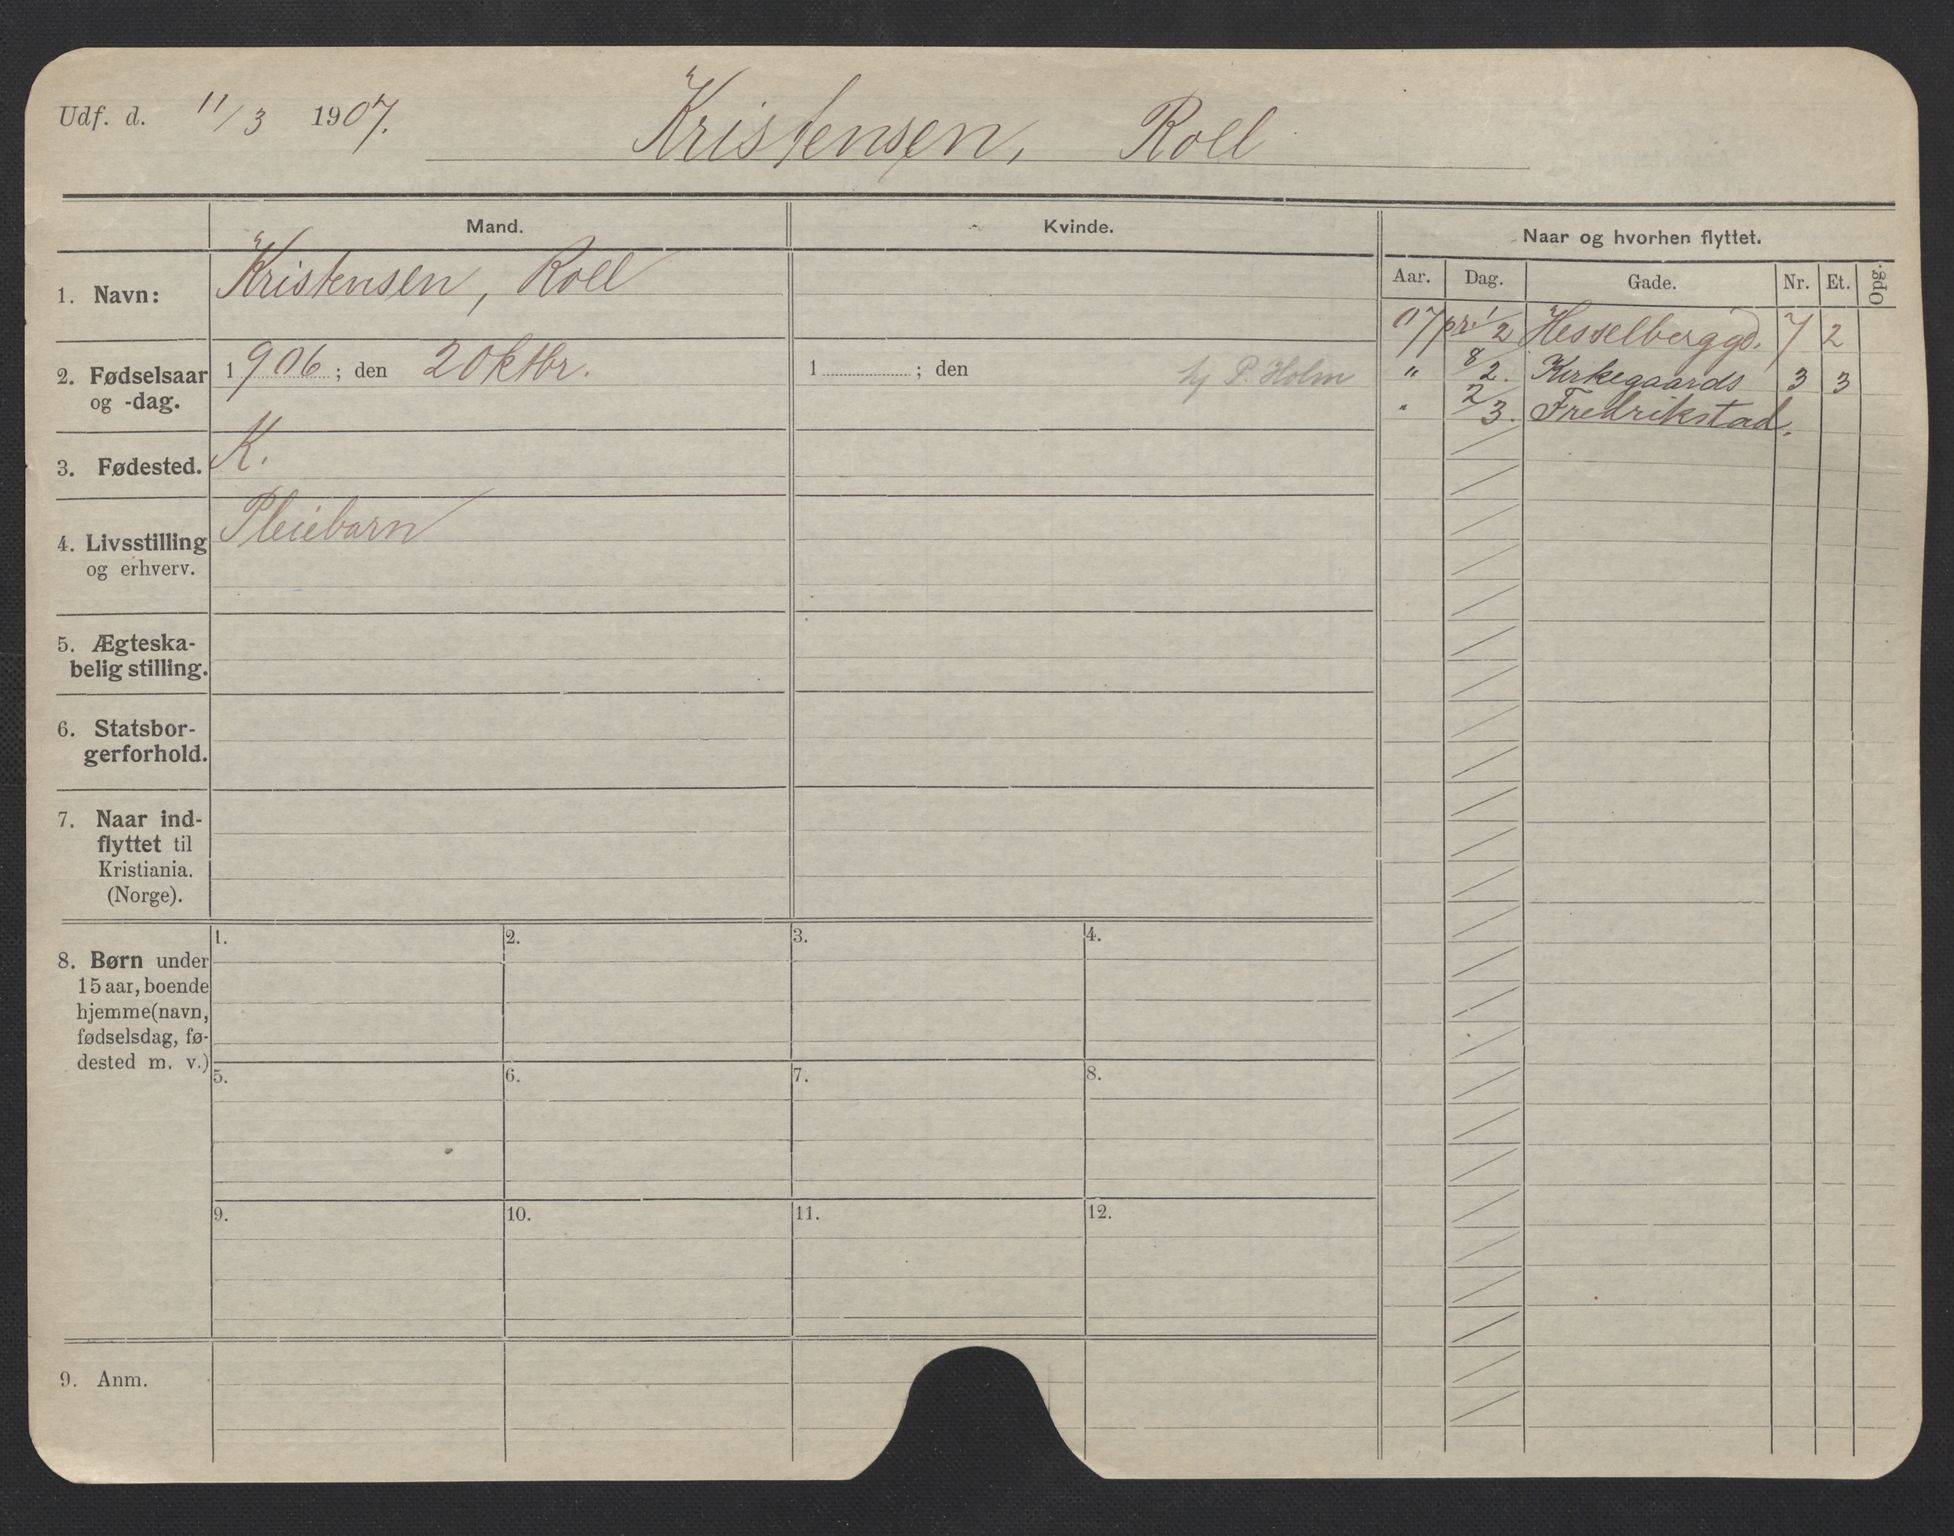 Udf. d. 11/3 1907. Kristensen, Roll
Mand. Kvinde. Naar og hvorhen flyttet.
Aar. Dag. Gade. Nr. Et. Opg.
1. Navn: Kristensen, Roll
07 pr. 1/2 Hesselberggd. 7 2
2. Fødselsaar og -dag. 1906 ; den 2 Oktbr. 1 ; den hj P. Holm
" 8/2. Kirkegaards 3 3
" 2/3. Fredrikstad.
3. Fødested. K.
4. Livsstilling Pleiebarn
og erhverv.
5. Ægteska-
belig stilling.
6. Statsbor-
gerforhold.
7. Naar ind-
flyttet til
Kristiania.
(Norge).
1. 2. 3. 4.
8. Børn under
15 aar, boende
hjemme (navn,
fødselsdag, fø-
dested m. v.)
5. 6. 7. 8.
9. 10. 11. 12.
9. Anm.